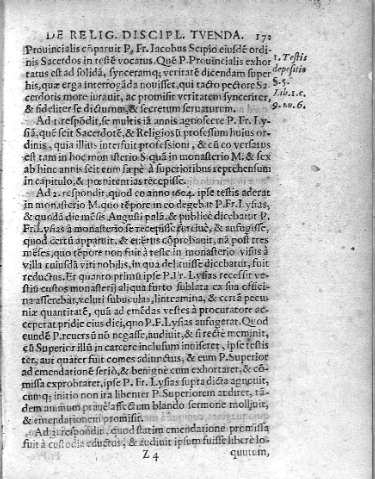 DE RELIG. DISCIPL. TVENDA.
Prouincialis cõparuit P. Fr. Iacobus Scipio eiusdẽ ordi
nis Sacerdos in testẽ vocatus. Quẽ P. Prouincialis exhor
tatus est ad solidã, synceramq; veritatẽ dicendam super
his, quæ erga interrogãda nouisset, qui tacto pectore Sa
cerdotis more iurauit, ac promisit veritatem synceriter,
& fideliter se dicturum, & secretum seruaturum.
1. Testis
depositio
§. 5.
Lib. 1. c.
9. nu. 6.
Ad 1. respõdit, se multis iã annis agnoscere P. Fr. Ly-
siã, quẽ scit Sacerdotẽ, & Religiosũ professum huius or
dinis, quia illius interfuit professioni, & cũ eo versatus
est tam in hoc monasterio S. quã in monasterio M. & sex
ab hinc annis scit eum sæpè à superioribus reprehensum
in capitulo, & pœnitentias recepisse.
Ad 2. respondit, quod eo anno 1604. ipse testis aderat
in monasterio M. quo tẽpore in eo degebat P. Fr. Lysias,
& quodã die mẽsis Augusti palã, & publicè dicebatur P.
Fr. Lysias à monasterio se recepisse furtiuè, & aufugisse,
quod certũ apparuit, & euẽtus cõprobauit, nã post tres
mẽses, quo tẽpore non fuit à teste in monasterio visus à
villa cuiusdã viri nobilis, in qua delituisse dicebatur, fuit
reductus. Et quanto primũ ipse P. Fr. Lysias recessit ve-
stiũ custos monasterij aliqua furto sublata ex sua offici
na asserebat, veluti subuculas, linteamina, & certã pecu
niæ quantitatẽ, quã ad emẽdas vestes à procuratore ac
ceperat pridie eius diei, quo P. F. Lysias aufugerat. Quod
eundẽ P. reuersũ nõ negasse, audiuit, & si rectè meminit,
cũ Superior illũ in carcere inclusum inuiseret, ipse testis
ter, aut quater fuit comes adiunctus, & eum P. Superior
ad emendationẽ seriò, & benignè cum exhortaret, & cõ-
missa exprobraret, ipse P. Fr. Lysias supra dicta agnouit,
cumq; initio non ita libenter P. Superiorem audiret, tã-
dem animum prauè affectum blando sermone molliuit,
& emendationem promisit.
Ad 3. respondit, quod statim emendatione promissa
fuit à custodia eductus, & audiuit ipsum fuisse liberè lo-
Z 4 quutum,